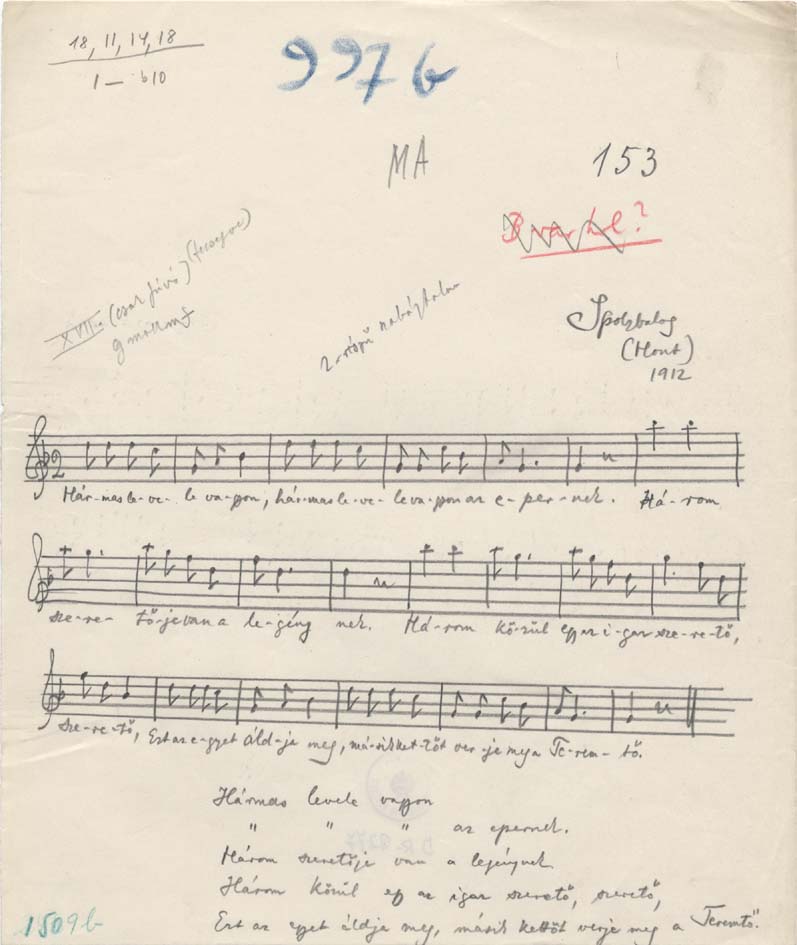 18, 11, 14, 18
1 — b10
997b
MA
153
XVII.
Ipolybalog
(Hont)
1912
2
Hár-mas le-ve- le va-gyon, hár-mas le-ve- le va-gyon az e-per-nek. Há-rom
sze-re- tő-je van a le-gény nek. Há-rom kö-zül egy az i-gaz sze-re-tő,
sze-re-tő, Ezt az e-gyet áld-ja meg, má-sik ket-tőt ver-je meg a Te-rem-tő.
Hármas levele vagyon
" " " az epernek.
Három szeretője van a legénynek
Három közül egy az igaz szerető, szerető,
Ezt az egyet áldja meg, másik kettőt verje meg a Teremtő.
1509b